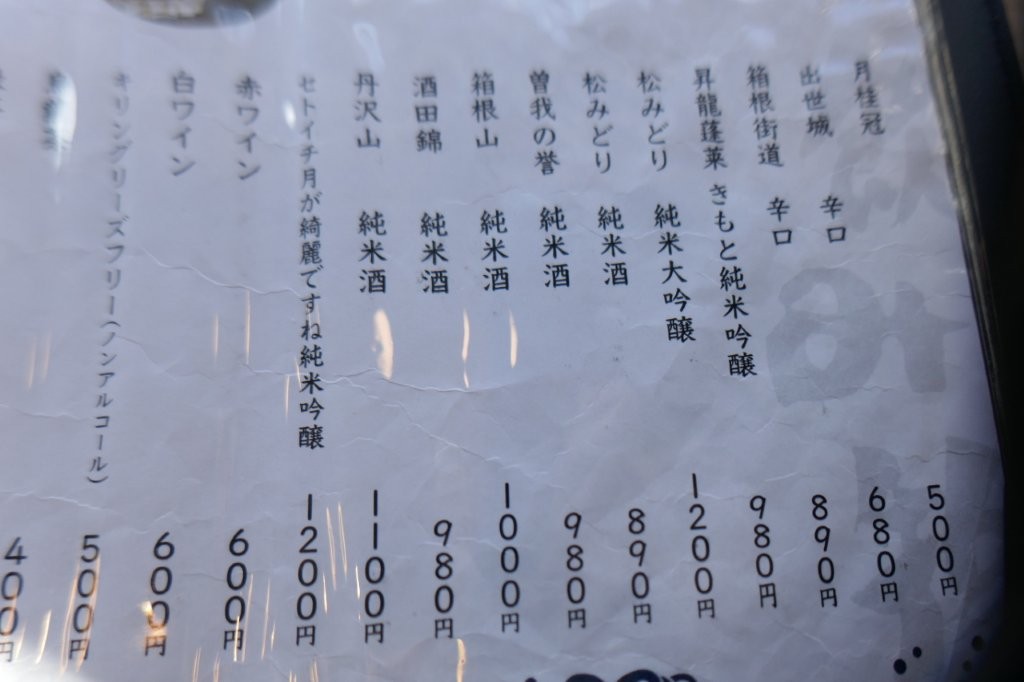 月桂冠 500円
出世城 辛口 680円
箱根街道 辛口 890円
昇龍蓬莱 きもと純米吟醸 980円
松みどり 純米大吟醸 1200円
松みどり 純米酒 890円
曽我の誉 純米酒 980円
箱根山 純米酒 1000円
酒田錦 純米酒 980円
丹沢山 純米酒 1100円
セトイチ月が綺麗ですね純米吟醸 1200円
赤ワイン 600円
白ワイン 600円
キリングリーズフリー(ノンアルコール) 500円
400円